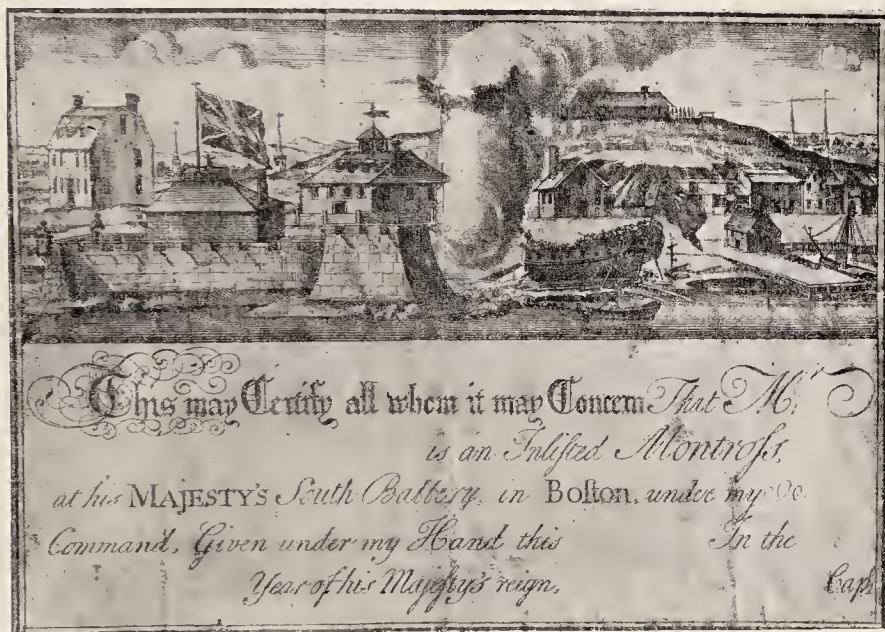 This may Certify all whom it may Concern That Mr.
is an Inlisted Montross,
at his MAJESTY'S South-Battery, in Boſton, under my
Command, Given under my Hand this In the
Year of his Majeſty's reign. Capt